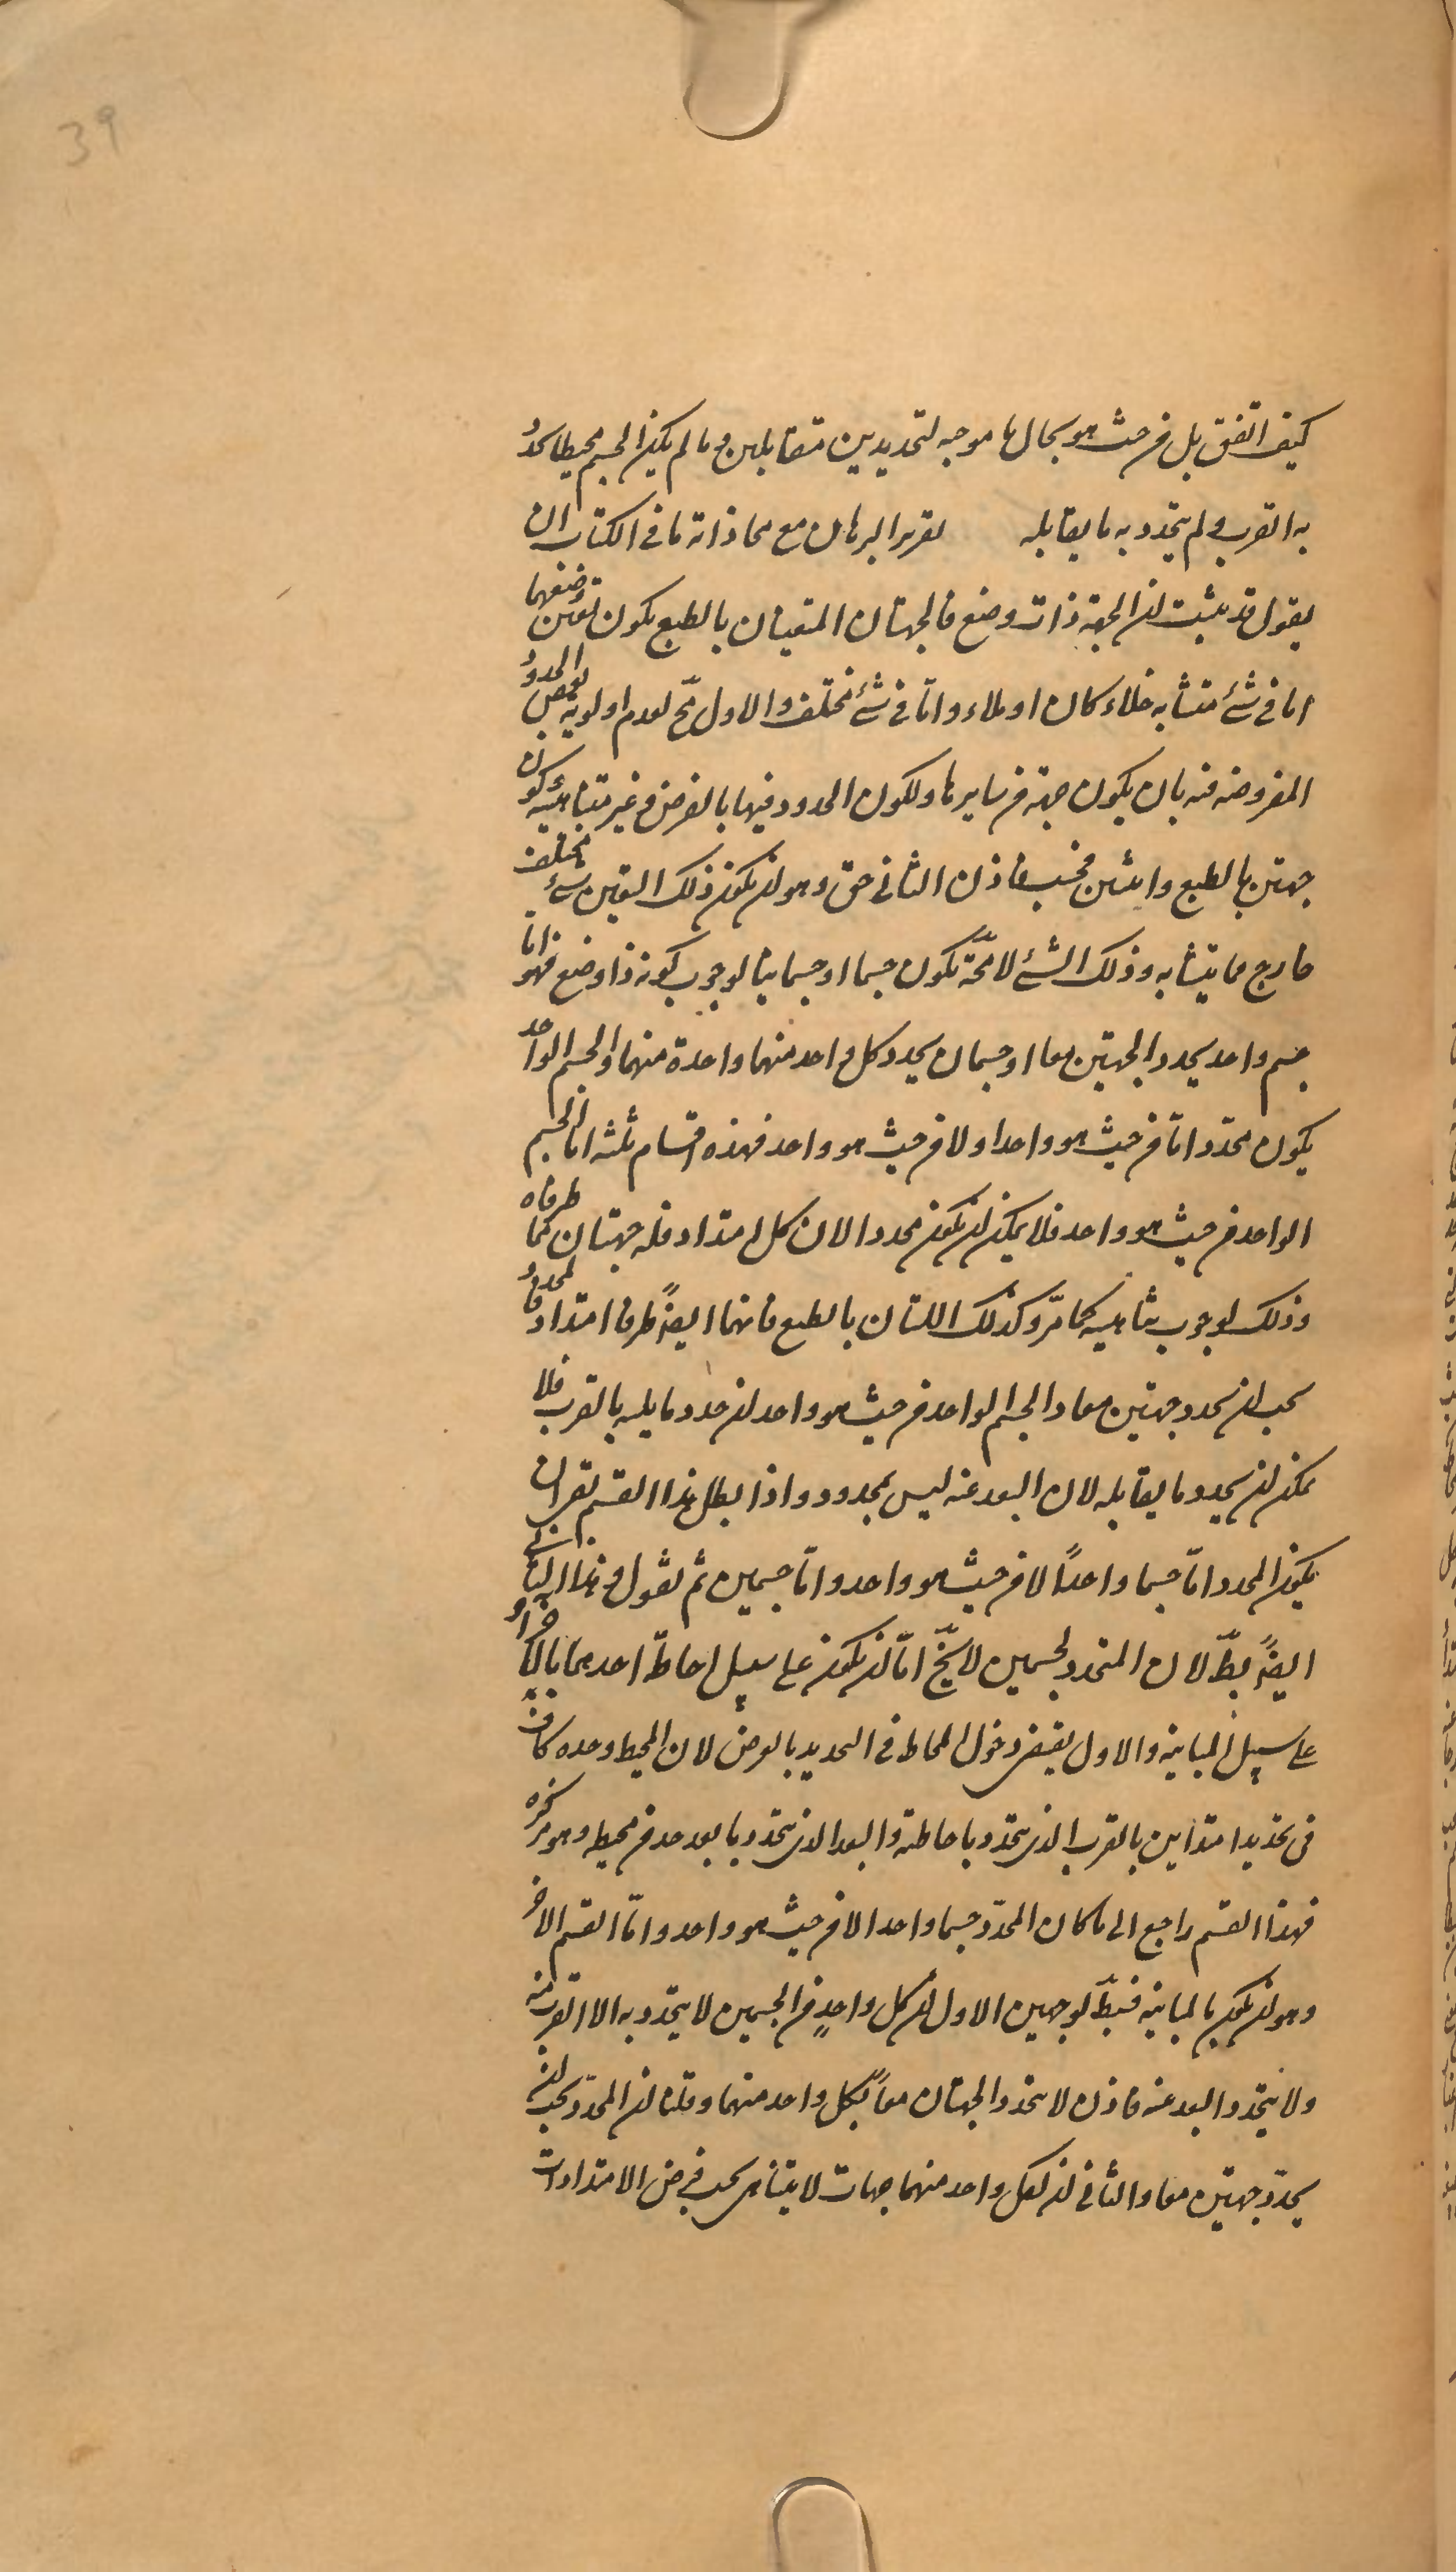 39
كيف اتفق بل من حيث هو بحال ما موجبه لتحديدين متقابلين و ما لم يكن الجسم محيطا تحدد
به القرب و لم يتحدد به ما يقابله تقرير البرهان مع محاذاة ما فى الكتاب ان
يقول قد ثبت ان الجهة ذات وضع فالجهتان المتعينتان بالطبع يكون تعين وضعهما
اما فى شئ متشابه خلاء كان او ملاء و امّا فى شئ مختلف و الاول مح لعدم اولوية بعض الحدود
المفروضه فيه بان يكون جهة من سايرها و لكون الحدود فيها بالفرض و غير متناهية و كون
جهتين بالطبع و اثنين فحسب فاذن الثانى حق و هو ان يكون ذلك التعين بشئ مختلف
خارج مما يتشابه و ذلك الشئ لا محّة يكون جسما او جسمانيا لوجوب كونه ذا وضع فهو امّا
جسم واحد يحدد الجهتين معا او جسمان يحدد كل واحد منهما واحدة منهما و الجسم الواحد
يكون محدّدا امّا من حيث هو واحد او لا من حيث هو واحد فهذه اقسام ثلثه اما الجسم
الواحد من حيث هو واحد فلا يمكن ان يكون محددا لان كل امتداد فله جهتان هما طرفاه
و ذلك لوجوب تناهيه كما مرّ و كذلك اللتان بالطبع فانهما ايضًا طرفا امتداد فالمحدد
يجب ان يحدد جهتين معا و الجسم الواحد من حيث هو واحد ان حدد ما يليه بالقرب فلا
يمكن ان يحدد ما يقابله لان البعد عنه ليس بمحدود و اذا بطل هذا القسم بقى ان
يكون المحدد امّا جسما واحدًا لا من حيث هو واحد و امّا جسمين ثم نقول و هذا الثانى
ايضًا بطّ لان المتحدد بجسمين لا يخّ امّا ان يكون على سبيل احاطة احدهما بالآخر او
على سبيل المباينة و الاول يقتضى دخول المحاط فى التحديد بالعرض لان المحيط وحده كاف
فى تحديد امتدادين بالقرب الذى يتحدد باحاطته و البعد الذى يتحدد بابعد حد من محيطه و هو مركزه
فهذا القسم راجع الى ما كان المحدّد جسما واحدا لا من حيث هو واحد و امّا القسم الآخر
و هو ان يكون بالمباينه فبطّ لوجهين الاول ان كل واحدٍ من الجسمين لا يتحدّد به الا القرب منه
و لا يتحدد البعد عنه فاذن لا يتحدد الجهتان معًا بكل واحد منهما و قلنا ان المحدّد يجب ان
يحدّد جهتين معا و الثانى ان لكل واحد منهما جهات لا يتناهى بحسب فرض الامتدادات